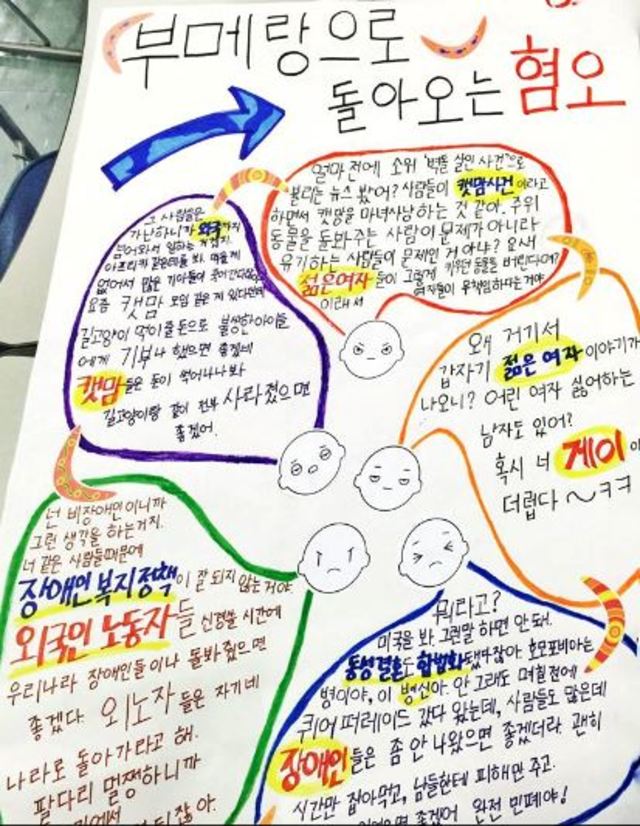 부메랑으로
돌아오는 혐오
얼마 전에 소위 "벽돌 살인 사건"으로
불리는 뉴스 봤어? 사람들이 캣맘사건이라고
하면서 캣맘을 마녀사냥하는 것 같아. 주위
동물을 돌봐주는 사람이 문제가 아니라
유기하는 사람들이 문제인 거 아냐?
젊은여자들이 그렇게 키우던 동물을 버린다며?
이래서 여자들이 무책임하다는거야
왜 거기서
갑자기 젊은 여자 이야기가
나오니? 어린 여자 싫어하는
남자도 있어?
혹시 너 게이
더럽다 ~ㅋㅋ
뭐라고?
미국을 봐. 그런말 하면 안돼.
동성결혼도 합법화됐잖아. 호모포비아는
병이야, 이 병신아. 안 그래도 며칠전에
퀴어 퍼레이드 갔다 왔는데, 사람들도 많은데
장애인들은 좀 안 나왔으면 좋겠더라. 괜히
시간만 잡아먹고, 남들한테 피해만 주고.
좋겠어 완전 민폐야!
넌 비장애인이니까
그런 생각을 하는거지.
너 같은 사람들때문에
장애인 복지정책이 잘 되지 않는거야
외국인 노동자들 신경쓸 시간에
우리나라 장애인들이나 돌봐줬으면
좋겠다. 외노자들은 자기네
나라로 돌아가라고 해.
팔다리 멀쩡하니까
그 사람들은
가난하니까 외국까지
넘어와서 일하는 거겠지.
아프리카 같은데를 봐. 먹을게
없어서 많은 기아들이
요즘 캣맘 모임 같은게 있다던데
길고양이 먹이줄돈으로 불쌍한아이들
에게 기부나 했으면 좋겠네
캣맘들은 돈이 썩어나나봐
길고양이랑 같이 전부 사라졌으면
좋겠어.